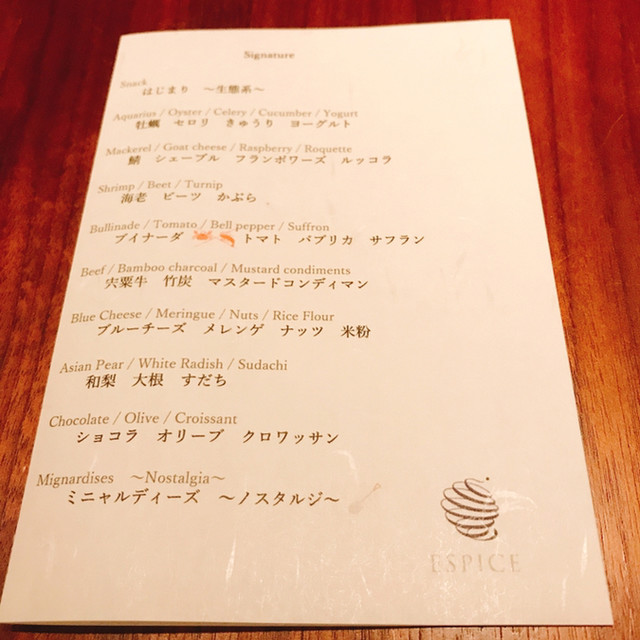 Signature
Snack
はじまり ～生態系～
Aquarius / Oyster / Celery / Cucumber / Yogurt
牡蠣 セロリ きゅうり ヨーグルト
Mackerel / Goat cheese / Raspberry / Roquette
鯖 シェーブル フランボワーズ ルッコラ
Shrimp / Beet / Turnip
海老 ビーツ かぶら
Bullinade / Tomato / Bell pepper / Suffron
ブイナーダ トマト パプリカ サフラン
Beef / Bamboo charcoal / Mustard condiments
宍粟牛 竹炭 マスタードコンディマン
Blue Cheese / Meringue / Nuts / Rice Flour
ブルーチーズ メレンゲ ナッツ 米粉
Asian Pear / White Radish / Sudachi
和梨 大根 すだち
Chocolate / Olive / Croissant
ショコラ オリーブ クロワッサン
Mignardises ～Nostalgia～
ミニャルディーズ ～ノスタルジ～
ESPICE